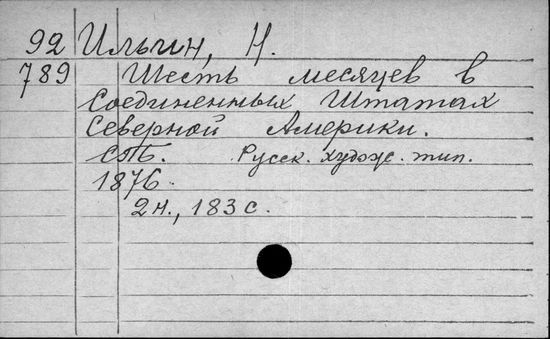 92 Ильин, Н.
789 Шесть месяцев в
Соединенных Штатах
Северной Америки.
СПБ. Русск. худож. тип.
1876.
2н., 183 с.